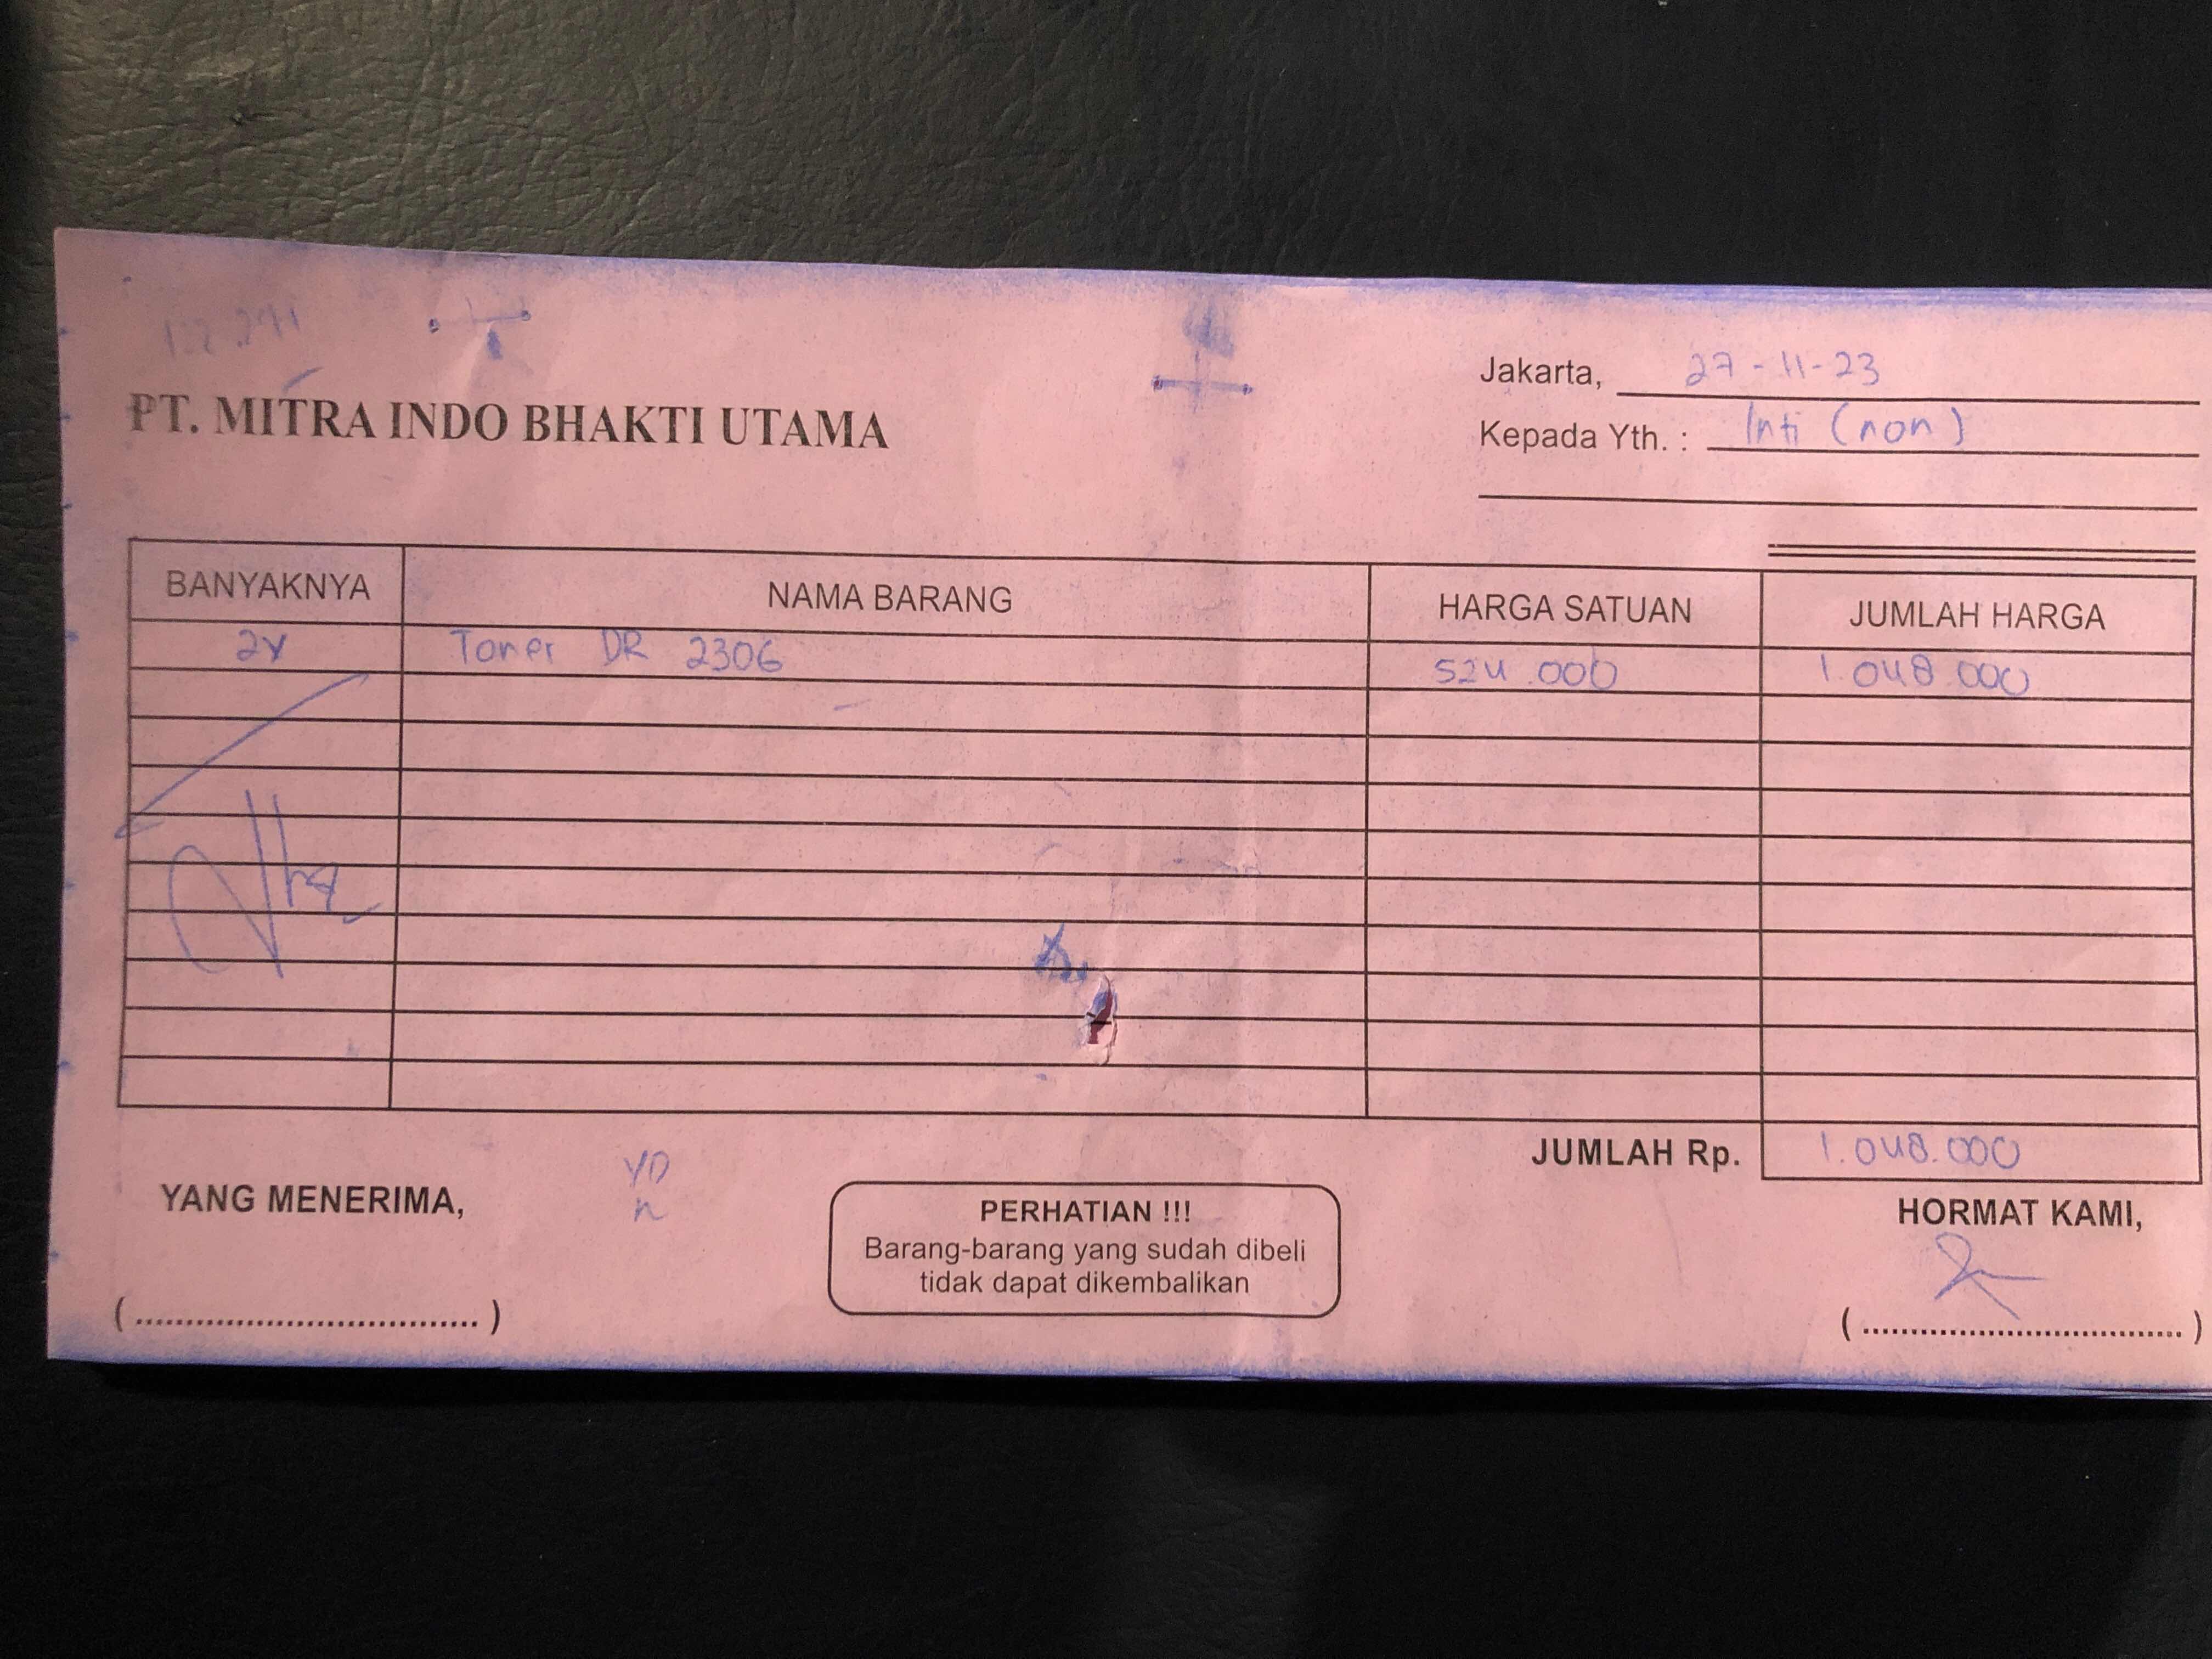 PT. MITRA INDO BHAKTI UTAMA
Jakarta, 27-11-23
Kepada Yth. : Inti (non)
BANYAKNYA NAMA BARANG HARGA SATUAN JUMLAH HARGA
2x Toner DR 2306 524.000 1.048.000
JUMLAH Rp. 1.048.000
YANG MENERIMA,
HORMAT KAMI,
PERHATIAN !!!
Barang-barang yang sudah dibeli
tidak dapat dikembalikan
(..................................)
(..................................)